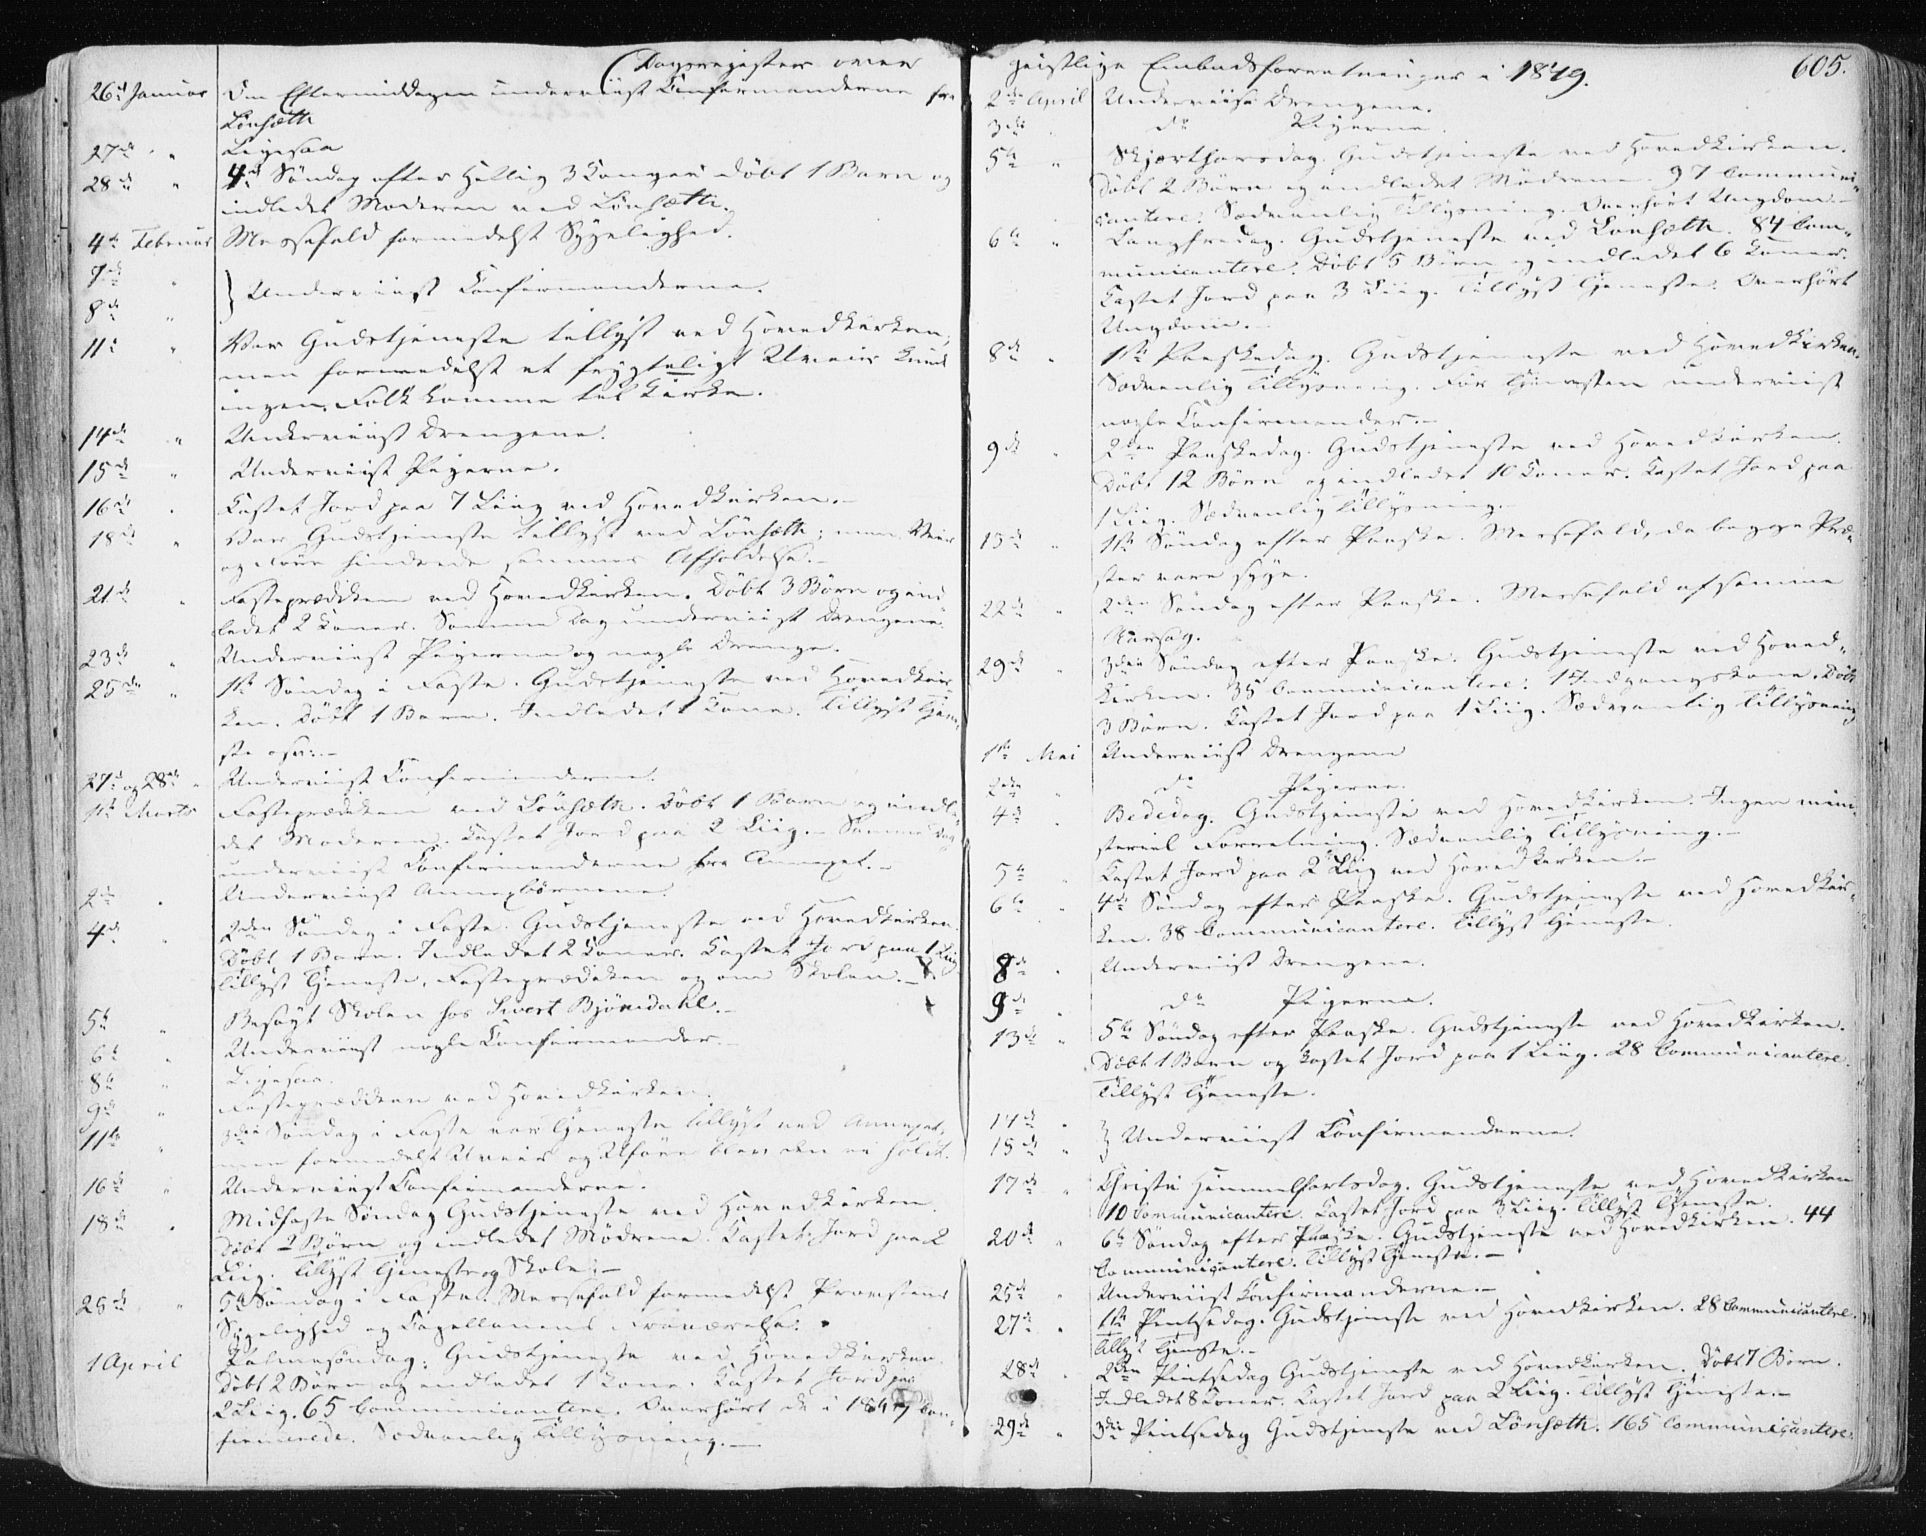 Dagsregister over
26de Januar Om Eftermiddagen underviist Confirmanderne fra
Lönsæth
27de " Ligesaa
28de " 4de Söndag efter Hellig 3 Konger döbt 1 Barn og
indledet Moderen ved Lönsæth.
4de Februar Messefald formedelst Sygelighed.
7de "
8de " } Underviist Confirmanderne.
11te " Var Gudstjeneste tillyst ved Hovedkirken,
men formedelst et frygteligt Uveir kunde
ingen Folk komme til Kirke.
14de " Underviist Drengene.
15de " Underviist Pigerne.
16de " Kastet Jord paa 7 Liig ved Hovedkirken.-
18de " Var Gudstjeneste tillyst ved Lönsæth; men Veir
og Före hindrede sammes Afholdelse.-
21de " Fasteprædiken ved Hovedkirken. Döbt 3 Börn og ind
ledet 2 Koner. Samme Dag underviist Drengene.
23de " Underviist Pigerne og nogle Drenge.
25de " 1ste Söndag i Faste. Gudstjeneste ved Hovedkir-
ken. Döbt 1 Barn. Indledet 1 Kone. Tillyst Tjene-
ste osv.-
27de og 28de " Underviist Confirmanderne.
1ste Marts Fasteprædiken ved Lönsæth. Döbt 1 Barn og indle-
det Moderen. Kastet Jord paa 2 Liig.- Samme Dag
underviist Confirmanderne fra Annexet.-
2de " Underviist Annexbörnene.
4de " 2den Söndag i Faste. Gudstjeneste ved Hovedkirken.
Döbt 1 Barn. Indledet 2 Koner. Kastet Jord paa 1 Liig
Tillyst Tjeneste, Fasteprædiken og om Skolen.-
5te " Besögt Skolen hos Sivert Bjørndahl.-
6te " Underviist nogle Confirmander.-
8de " Ligesaa.
9de " Fasteprædiken ved Hovedkirken.
11te " 3die Söndag i Faste var Tjeneste tillyst ved Annexet,
men formedelst Uveir og Uföre blev den ei holdt.
16de " Underviist Confirmanderne.
18de " Midfaste Søndag Gudstjeneste ved Hovedkirken.
Döbt 2 Börn og indledet Mödrene. Kastet Jord paa 2
Liig. Tillyst Tjeneste og Skole.-
25de " 5te Søndag i Faste. Messefald formedelst Provstens
Sygelighed og Capellanens Fraværelse.
1 April Palmesøndag. Gudstjeneste ved Hovedkirken.
Döbt 2 Börn og indledet 1 Kone. Kastet Jord paa
2 Liig. 65 Communicantere. Overhört de i 1847 Con-
firmerede. Sædvanlig Tillysning.-
geistlige Embedsforretninger i 1849. 605.
2den April Underviist Drengene.
3die " do Pigerne.
5te " Skjærthorsdag. Gudstjeneste ved Hovedkirken.
Döbt 2 Börn og indledet Mödrene. 97 Communi-
cantere. Sædvanlig Tillysning. Overhört Ungdom.-
6te " Langfredag. Gudstjeneste ved Lönsæth. 84 Com-
municantere. Döbt 5 Börn og indledet 6 Koner.
Kastet Jord paa 3 Liig. Tillyst Tjeneste. Overhört
Ungdom.-
8de " 1ste Paaskedag. Gudstjeneste ved Hovedkirken.
Sædvanlig Tillysning. Før Tjenesten underviist
nogle Confirmander.-
9de " 2den Paaskedag. Gudstjeneste ved Hovedkirken.
Döbt 12 Börn og indledet 10 Koner. Kastet Jord paa
1 Liig. Sædvanlig Tillysning.-
15de " 1ste Söndag efter Paaske. Messefald, da begge Præ-
ster vare syge.
22de " 2den Söndag efter Paaske. Messefald af samme
Aarsag.
29de " 3die Söndag efter Paaske. Gudstjeneste ved Hoved-
kirken. 35 Communicantere. 1 Indgangskone. Döbt
3 Börn. Kastet Jord paa 1 Liig. Sædvanlig Tillysning
1ste Mai Underviist Drengene
2den " do Pigerne.
4de " Bededag. Gudstjeneste ved Hovedkirken. Ingen mini-
steriel Forretning. Sædvanlig Tillysning.-
5te " Kastet Jord paa 2 Liig ved Hovedkirken.-
6te " 4de Söndag efter Paaske. Gudstjeneste ved Hovedkir-
ken. 38 Communicantere. Tillyst Tjeneste.
8de " Underviist Drengene.
9de " do Pigerne.
13de " 5te Söndag efter Paaske. Gudstjeneste ved Hovedkirken.
Döbt 1 Barn og kastet Jord paa 1 Liig. 28 Communicantere.
Tillyst Tjeneste.
14de "
15de " } Underviist Confirmanderne.
17de " Christi Himmelfartsdag. Gudstjeneste ved Hovedkirken
10 Communicantere. Kastet Jord paa 3 Liig. Tillyst Tjeneste.
20de " 6te Söndag efter Paaske. Gudstjeneste ved Hovedkirken. 44
Communicantere. Tillyst Tjeneste.-
25de " Underviist Confirmanderne.-
27de " 1ste Pintsedag. Gudstjeneste ved Hovedkirken. 28 Communicantere.
Tillyst Tjeneste.-
28de " 2den Pintsedag Gudstjeneste ved Hovedkirken. Döbt 7 Börn.
Indledet 8 Koner. Kastet Jord paa 2 Liig. Tillyst Tjeneste.-
29de " 3die Pintsedag Gudstjeneste ved Lönsæth. 165 Communicantere.